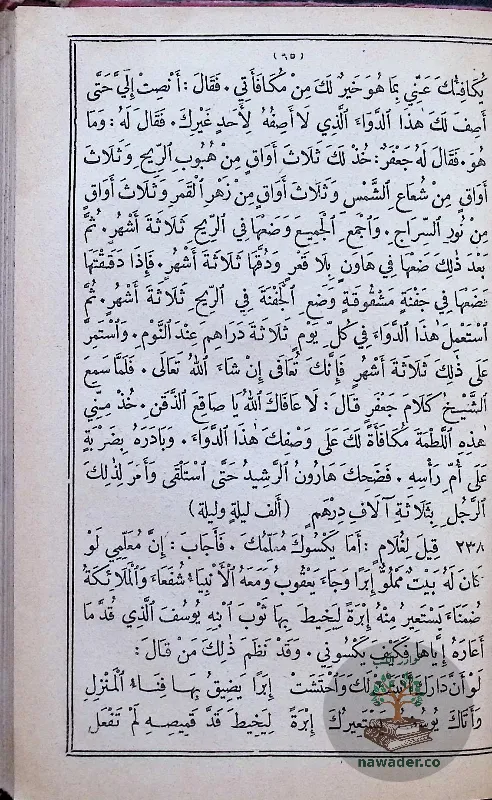 (٦٥)
يُكَافِئَكَ عَنِّي بِمَا هُوَ خَيْرٌ لَكَ مِنْ مُكَافَأَتِي. فَقَالَ: أَنْصِتْ إِلَيَّ حَتَّى
أَصِفَ لَكَ هٰذَا الدَّوَاءَ الَّذِي لَا أَصِفُهُ لِأَحَدٍ غَيْرِكَ. فَقَالَ لَهُ: وَمَا
هُوَ. فَقَالَ لَهُ جَعْفَرٌ: خُذْ لَكَ ثَلَاثَ أَوَاقٍ مِنْ هُبُوبِ الرِّيحِ وَثَلَاثَ
أَوَاقٍ مِنْ شُعَاعِ الشَّمْسِ وَثَلَاثَ أَوَاقٍ مِنْ زَهْرِ الْقَمَرِ وَثَلَاثَ أَوَاقٍ
مِنْ نُورِ السِّرَاجِ. وَاجْمَعِ الْجَمِيعَ وَضَعْهَا فِي الرِّيحِ ثَلَاثَةَ أَشْهُرٍ. ثُمَّ
بَعْدَ ذٰلِكَ ضَعْهَا فِي هَاوَنٍ بِلَا قَعْرٍ وَدُقَّهَا ثَلَاثَةَ أَشْهُرٍ. فَإِذَا دَقَقْتَهَا
تَضَعُهَا فِي جَفْنَةٍ مَشْقُوقَةٍ وَضَعِ الْجَفْنَةَ فِي الرِّيحِ ثَلَاثَةَ أَشْهُرٍ. ثُمَّ
اسْتَعْمِلْ هٰذَا الدَّوَاءَ فِي كُلِّ يَوْمٍ ثَلَاثَةَ دَرَاهِمَ عِنْدَ النَّوْمِ. وَاسْتَمِرَّ
عَلَى ذٰلِكَ ثَلَاثَةَ أَشْهُرٍ فَإِنَّكَ تُعَافَى إِنْ شَاءَ اللهُ تَعَالَى. فَلَمَّا سَمِعَ
الشَّيْخُ كَلَامَ جَعْفَرٍ قَالَ: لَا عَافَاكَ اللهُ يَا صَاقِعَ الذَّقَنِ. خُذْ مِنِّي
هٰذِهِ اللَّطْمَةَ مُكَافَأَةً لَكَ عَلَى وَصْفِكَ هٰذَا الدَّوَاءَ. وَبَادَرَهُ بِضَرْبَةٍ
عَلَى أُمِّ رَأْسِهِ. فَضَحِكَ هَارُونُ الرَّشِيدُ حَتَّى اسْتَلْقَى وَأَمَرَ لِذٰلِكَ
الرَّجُلِ بِثَلَاثَةِ آلَافِ دِرْهَمٍ (ألف ليلة وليلة)
٢٣٨ قِيلَ لِغُلَامٍ: أَمَا يَكْسُوكَ مُعَلِّمُكَ. فَأَجَابَ: إِنَّ مُعَلِّمِي لَوْ
كَانَ لَهُ بَيْتٌ مَمْلُوٌّ إِبَرًا وَجَاءَ يَعْقُوبُ وَمَعَهُ الْأَنْبِيَاءُ شُفَعَاءَ وَالْمَلَائِكَةُ
ضُمَنَاءَ يَسْتَعِيرُ مِنْهُ إِبْرَةً لِيَخِيطَ بِهَا ثَوْبَ ابْنِهِ يُوسُفَ الَّذِي قُدَّ مَا
أَعَارَهُ إِيَّاهَا فَكَيْفَ يَكْسُونِي. وَقَدْ نَظَمَ ذٰلِكَ مَنْ قَالَ:
لَوْ أَنَّ دَارَكَ لَكَ وَاحْتَشَتْ إِبَرًا يَضِيقُ بِهَا فِنَاءُ الْمَنْزِلِ
وَأَتَاكَ يُوسُفُ يَسْتَعِيرُكَ إِبْرَةً لِيَخِيطَ قَدَّ قَمِيصِهِ لَمْ تَفْعَلِ
nawader.co